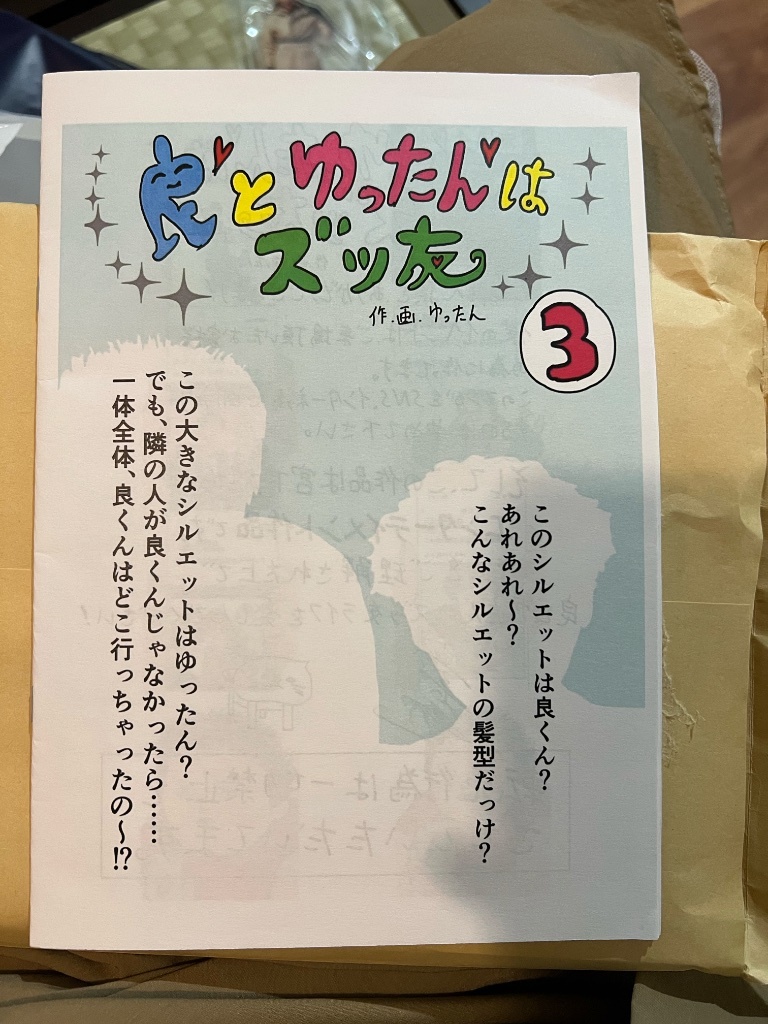 良とゆったんは
ズッ友
作.画.ゆったん
3
このシルエットは良くん?
あれあれ〜?
こんなシルエットの髪型だっけ?
この大きなシルエットはゆったん?
でも、隣の人が良くんじゃなかったら……
一体全体、良くんはどこ行っちゃったの〜!?